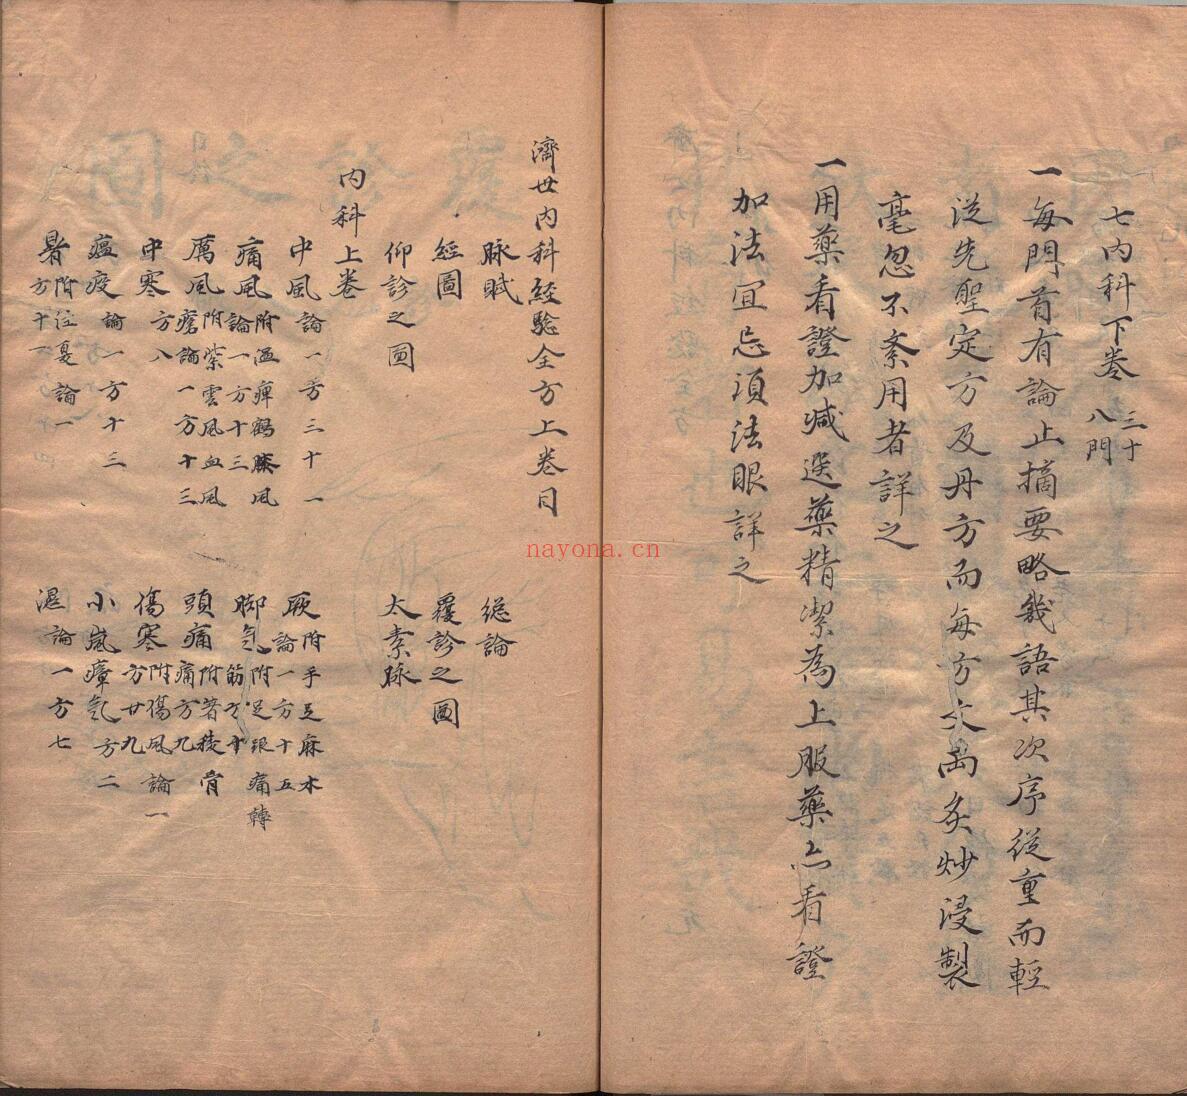 七內科下卷 三十八門
一每門首有論止摘要略幾語其次序從重而輕
從先聖定方及丹方而每方文咼炙炒浸製
毫忽不紊用者詳之
一用藥看證加減選藥精潔為上服藥亦看證
加法宜忌須法眼詳之
濟世內科經驗全方上卷目
脉賦 総論
經圖 覆診之圖
仰診之圖 太素脉
內科上卷
中風論一方三十一 厥附手足麻木論一方十五
痛風附濕痺鶴膝風論一方十三 脚氣附足跟痛轉筋方十
厲風附紫雲風血風瘡論一方十三 頭痛附著稜骨痛方九
中寒方八 傷寒附傷風論一方廿九
瘟疫論一方十三 小嵐瘴氣方二
暑附注夏論一方十一 濕論一方七
nayona.cn